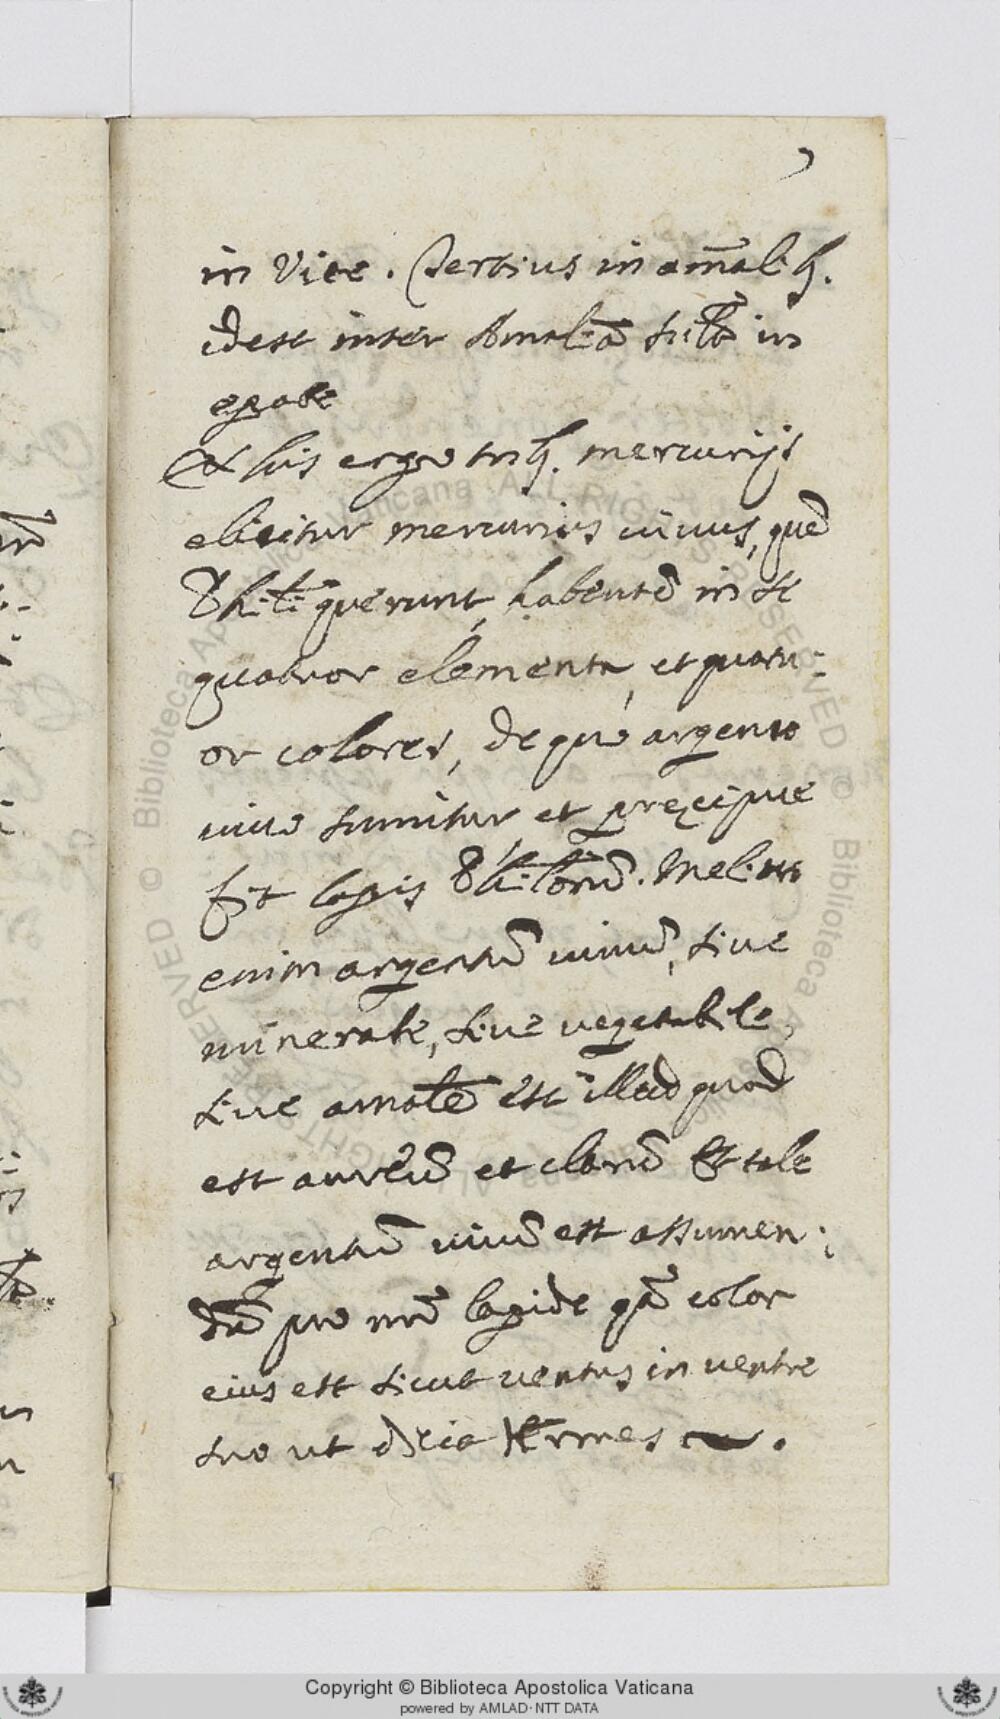 in Vite. Tertius in aĩalibꝫ.
idest inter Amalia
epate
Ex his ergo tribꝫ. mercurijs
elicitur mercurius uiuus, quẽ
Phili querunt, habentẽ in se
quatuor elementa, et quatu:
or colores, de quo argento
uiuo sumitur, et pręcipue
fit lapis Philorũ. Melius
enim argentũ uiuũ, siue
minerale, siue vegetabile,
siue amale est illud quod
est aureũ et clarũ Et tale
argentũ uiuũ est assumen:
dũ pro nrõ lapide qã color
eius est sicut uentus in uentre
suo ut dicit Hermes.
Copyright © Biblioteca Apostolica Vaticana
powered by AMLAD·NTT DATA